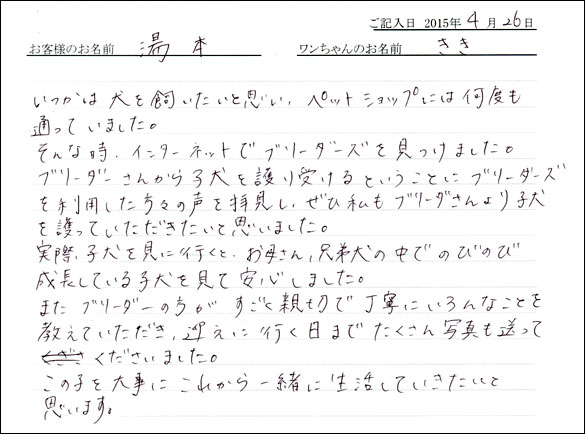 ご記入日 2015年 4月 26日
お客様のお名前 湯本 ワンちゃんのお名前 きき
いつかは犬を飼いたいと思い、ペットショップには何度も
通っていました。
そんな時、インターネットでブリーダーズを見つけました。
ブリーダーさんから子犬を護り受けるということにブリーダーズ
を利用した方々の声を拝見し、ぜひ私もブリーダさんより子犬
を護っていただきたいと思いました。
実際、子犬を見に行くと、お母さん、兄弟犬の中でのびのび
成長している子犬を見て安心しました。
またブリーダーの方がすごく親切で丁寧にいろんなことを
教えていただき、迎えに行く日までたくさん写真も送って
くださいました。
この子を大事にこれから一緒に生活していきたいと
思います。